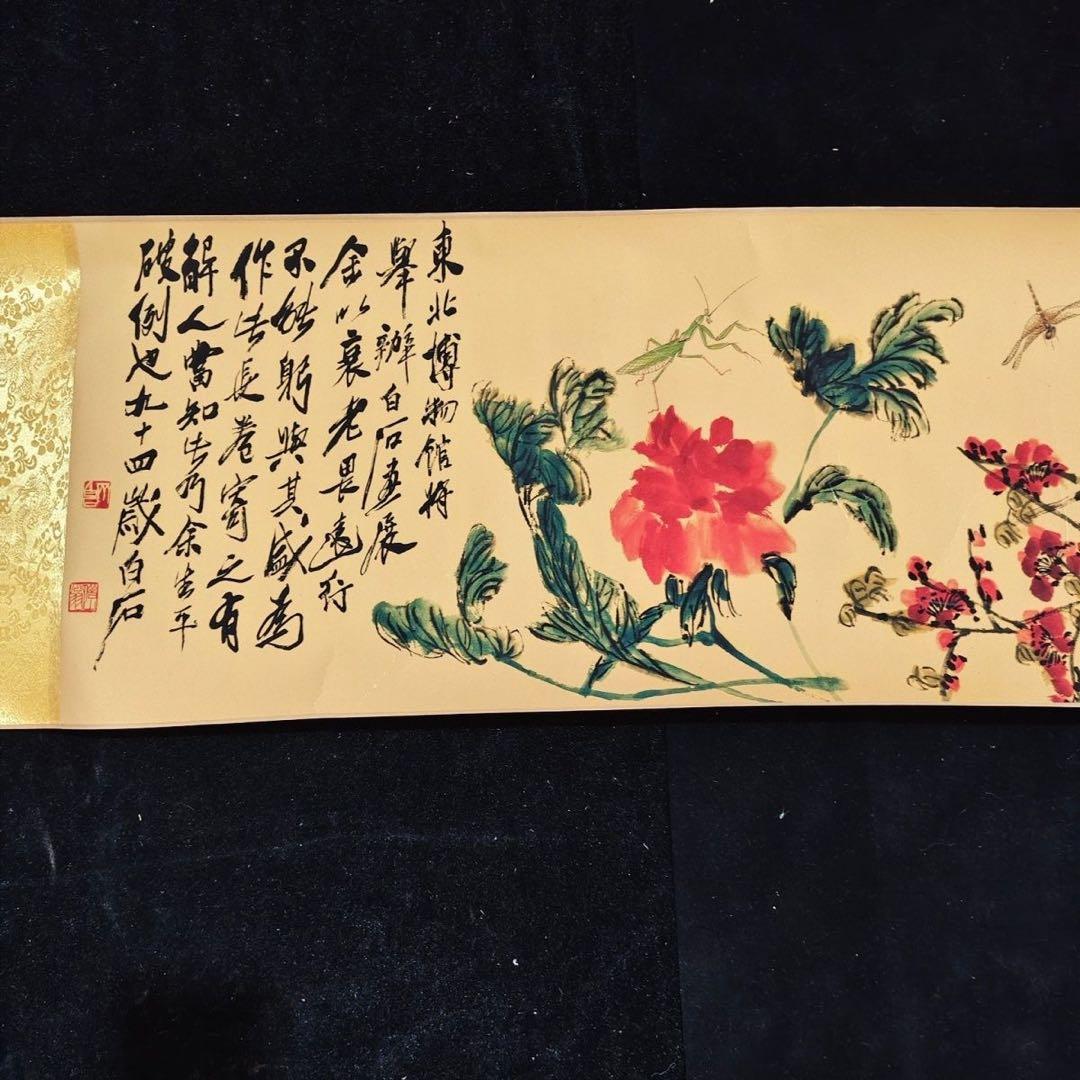 東北博物館將
舉辦白石畫展
余以衰老畏遠行
不能躬與其盛為
作此長卷寄之有
解人當知此乃余生平
破例也九十四歲白石